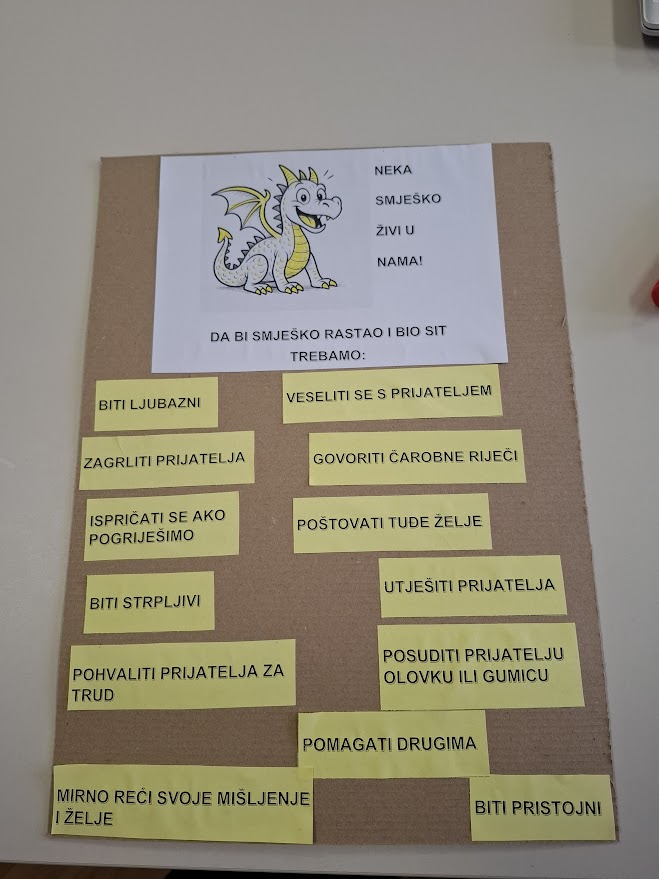 NEKA
SMJEŠKO
ŽIVI U
NAMA!
DA BI SMJEŠKO RASTAO I BIO SIT
TREBAMO:
BITI LJUBAZNI
VESELITI SE S PRIJATELJEM
ZAGRLITI PRIJATELJA
GOVORITI ČAROBNE RIJEČI
ISPRIČATI SE AKO
POGRIJEŠIMO
POŠTOVATI TUĐE ŽELJE
BITI STRPLJIVI
UTJEŠITI PRIJATELJA
POHVALITI PRIJATELJA ZA
TRUD
POSUDITI PRIJATELJU
OLOVKU ILI GUMICU
POMAGATI DRUGIMA
MIRNO REĆI SVOJE MIŠLJENJE
I ŽELJE
BITI PRISTOJNI